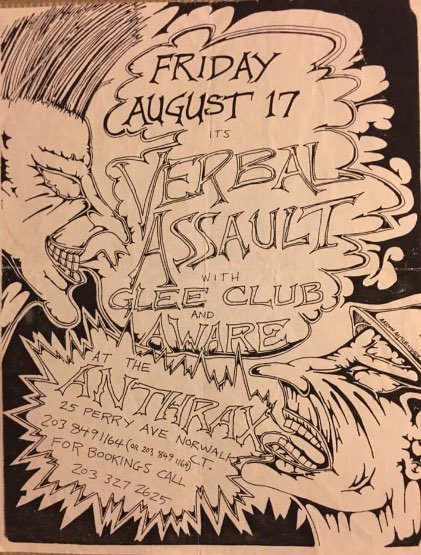 FRIDAY
AUGUST 17
ITS
VERBAL
ASSAULT
WITH
GLEE CLUB
AND
AWARE
AT THE
ANTHRAX
25 PERRY AVE NORWALK
C.T.
203 8491164 (OR 203 849 1169)
FOR BOOKINGS CALL
203 327 2635